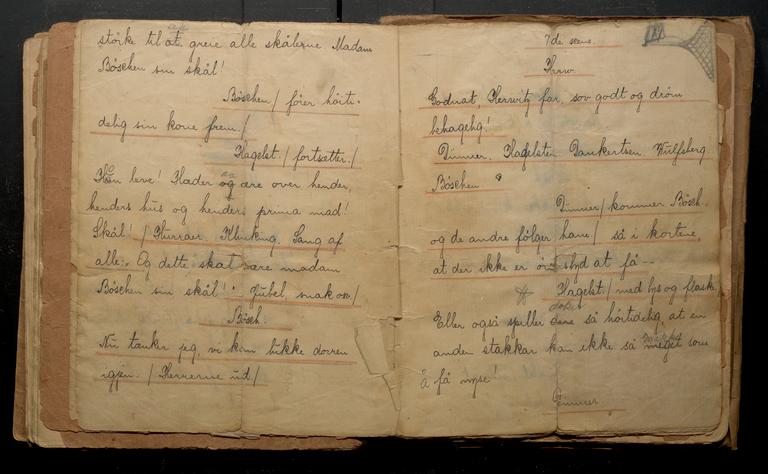 ade
störke til at greie alle skålerne Madam
Böschen sin skål!
Böschen / förer höiti-
delig sin kone frem /
Hagelst. / fortsætter. /
Hun leve! Hæder og ære over hender,
henders hus og henders prima mad!
Skål! / Hurraer. Klinking. Sang af
alle: Og dette skal være madam
Böschen sin skål! Jubel snak om /
Bösch.
Nu tænker jeg, vi kan lukke dörren
igjen. / Herrerne ud /
7de scene.
Herw.
Godnat, Herwitz far, sov godt og dröm
behagelig!
Dimmer. Hagelsten Dankertsen Wulfsberg
Böschen
Dimmer / kommer Bösch.
og de andre fölger ham / så i kortene,
at der ikke er skyd at få --
Hagelst. / med lys og flask
Eller også spiller dere så höitidelig, at en
anden stakkar kan ikke så meget som
å få nyse!
Dimmer